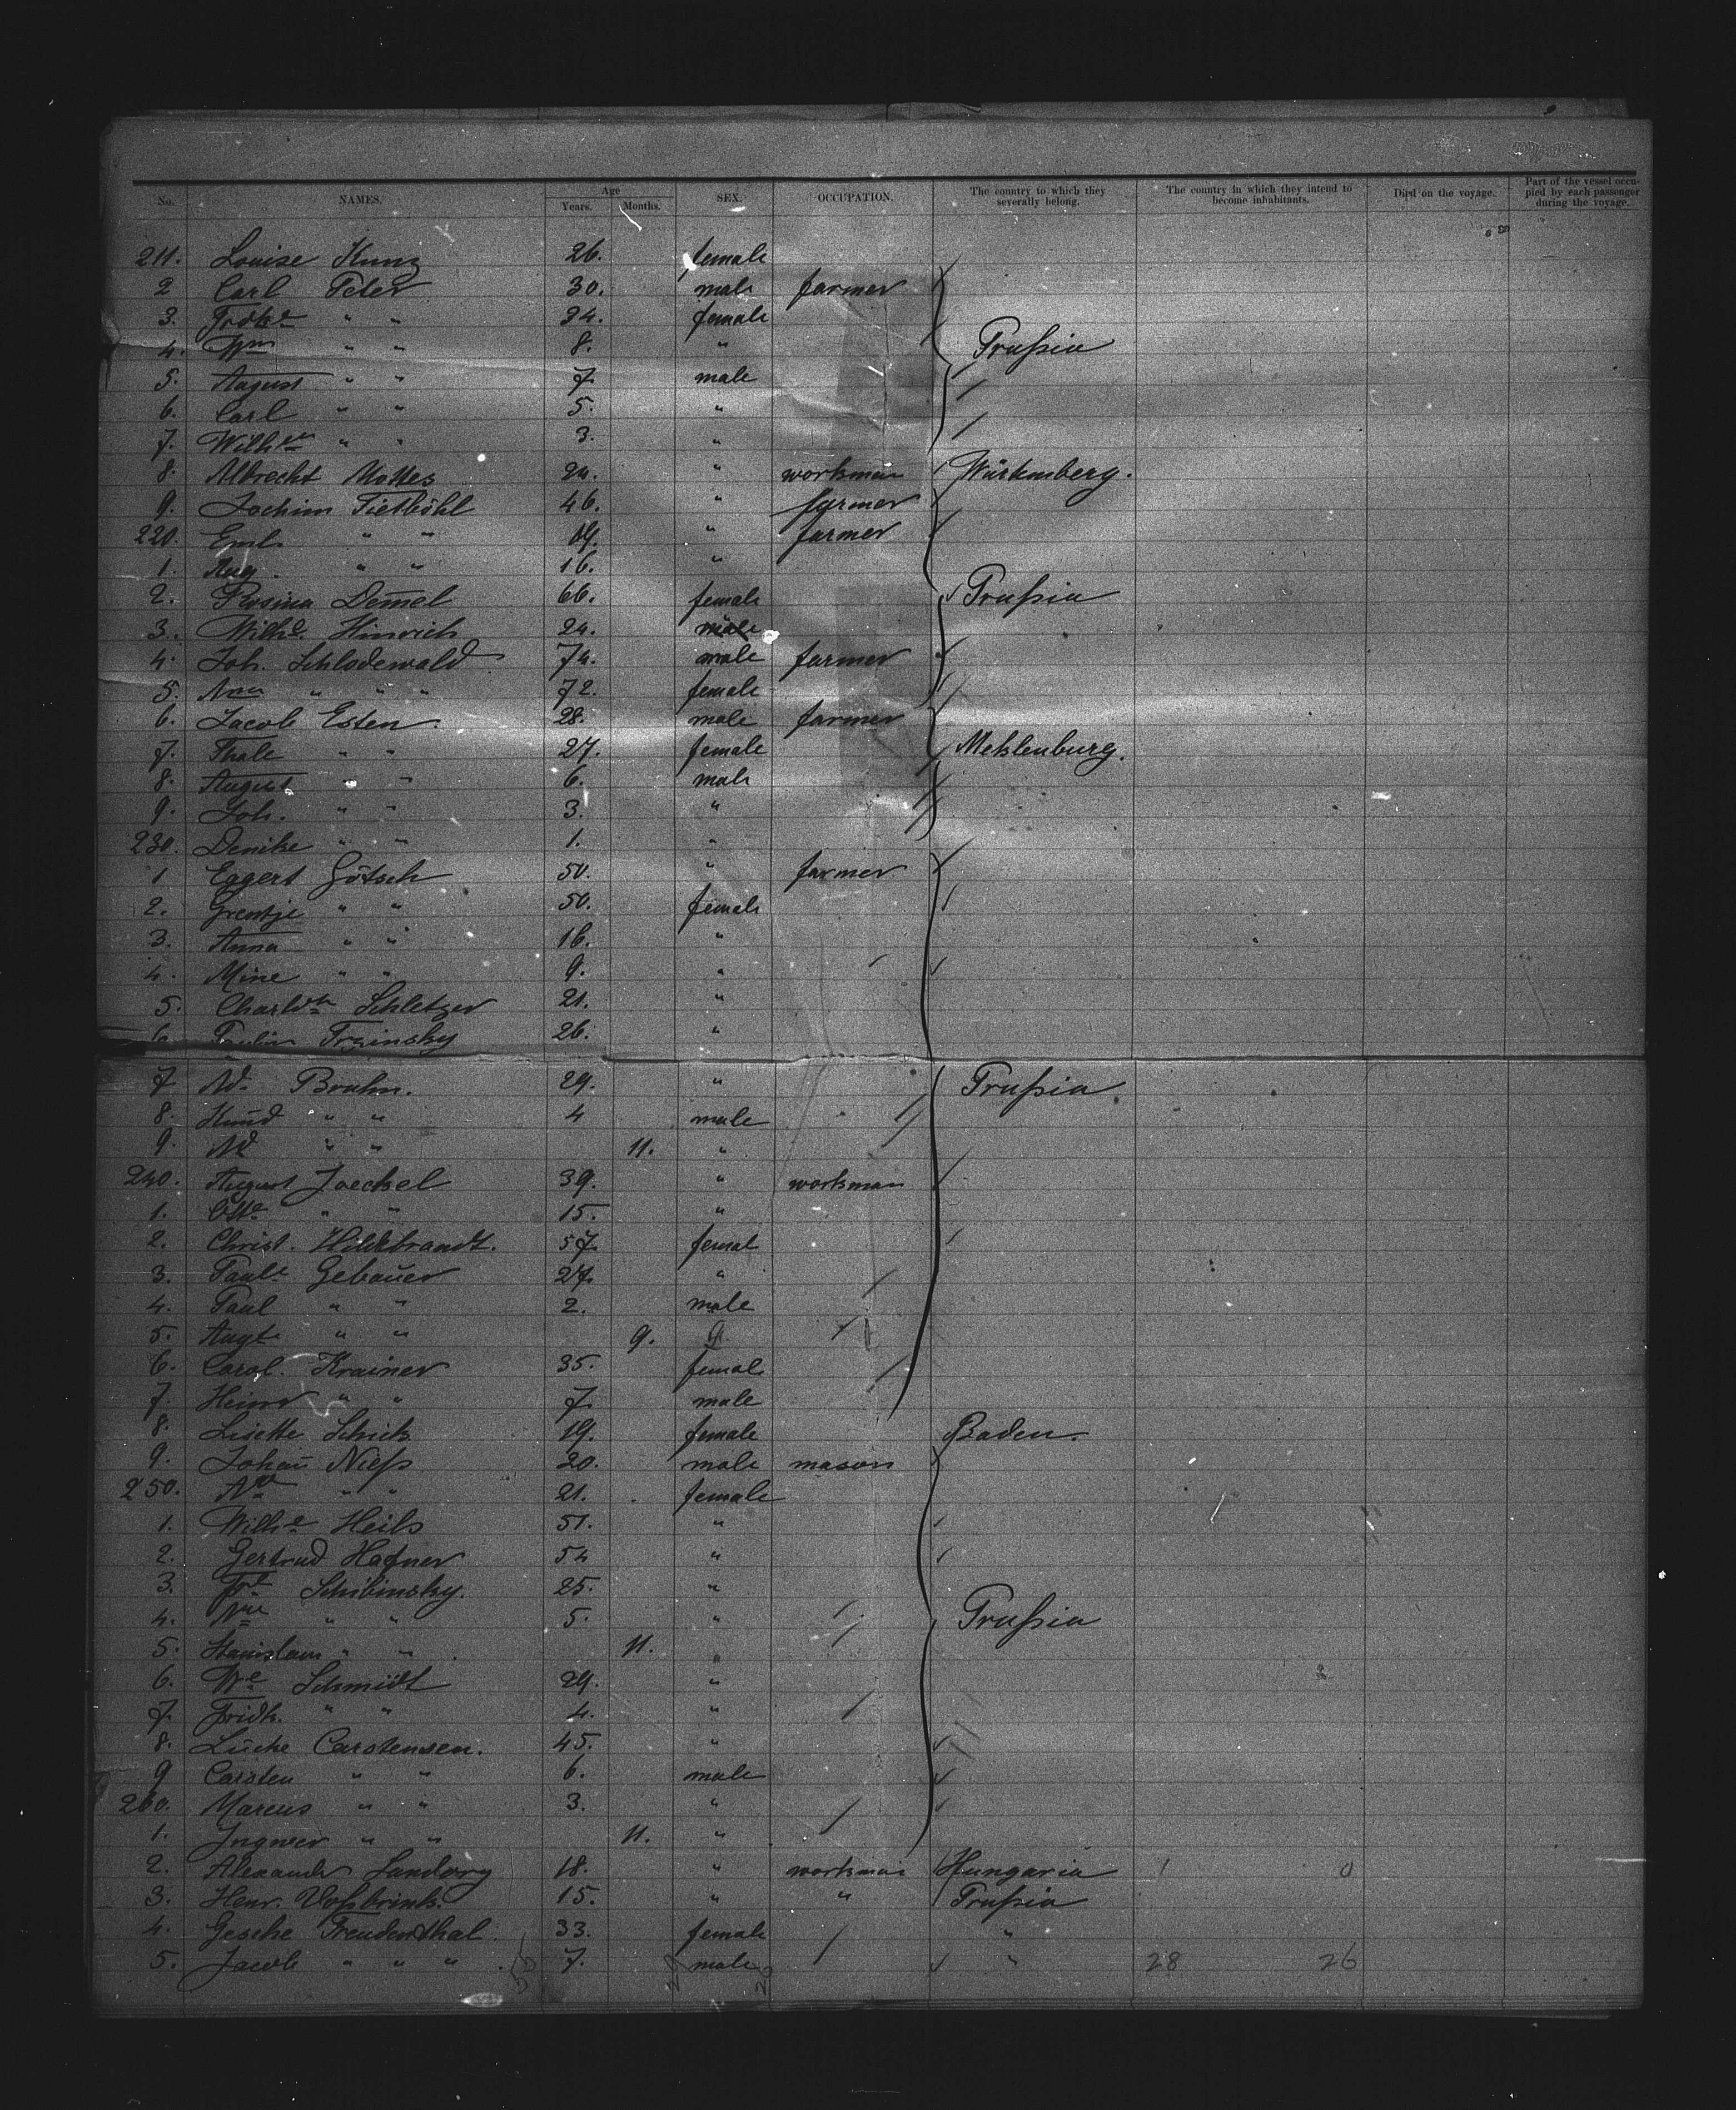 No. NAMES. Age Years. Months. SEX. OCCUPATION. The country to which they severally belong. The country in which they intend to become inhabitants. Died on the voyage. Part of the vessel occupied by each passenger during the voyage.
211. Louise Kunz 26. female
2 Carl Peter 30. male farmer
3. " " 34. female
4. Wm " " 8. " Prußia
5. August " " 7. male
6. Carl " " 5. "
7. Wilhm " " 3. "
8. Albrecht Mattes 24. " workman Würtemberg.
9. Jochim Tietböhl 46. " farmer
220. Eml. " " 19. " farmer
1. Aug. " " 16. "
2. Rosina Demel 66. female Prußia
3. Wilhe. Hinrich 24. male
4. Joh. Schlodewald 74. male farmer
5. " " " 72. female
6. Jacob Esten. 28. male farmer
7. Thale " " 27. female Meklenburg.
8. August " " 6. male
9. Joh. " " 3. "
230. " " 1. "
1 Eggert Götsch 50. " farmer
2. Grentje " " 50. female
3. Anna " " 16. "
4. Mine " " 9. "
5. Schletzer 21. "
6. 26. "
7 Bruhn. 29. " Prußia
8. " " 4 male
9. Ad " " 11. "
240. August Jaeckel 39. " workman
1. Otto " " 15. "
2. Christ. Hildebrandt. 57. femal
3. Paule Gebauer 27. "
4. Paul " " 2. male
5. Augt " " 9. 9.
6. Carol. Krainer 35. femal
7. Heinr " " 7. male
8. Lisette Schick 19. female Baden.
9. Johan Nieß 20. male mason
250. " " 21. female
1. Wilhe Heils 51. "
2. Gertrud Hafner 54 "
3. Schibinsky. 25. "
4. " " 5. " Prußia
5. Stanislaus " " 11. "
6. We Schmidt 29. "
7. Fridk. " " 4. "
8. Lücke Carstensen. 45. "
9 Carsten " " 6. male
260. Marcus " " 3. "
1. Ingwer " " 11. "
2. Alexander Sandory 18. " workman Hungaria 1 0
3. Henr. Voßbrink. 15. " " Prußia
4. Gesche Freudenthal. 33. female "
5. Jacob " " " 7. male " 28 26